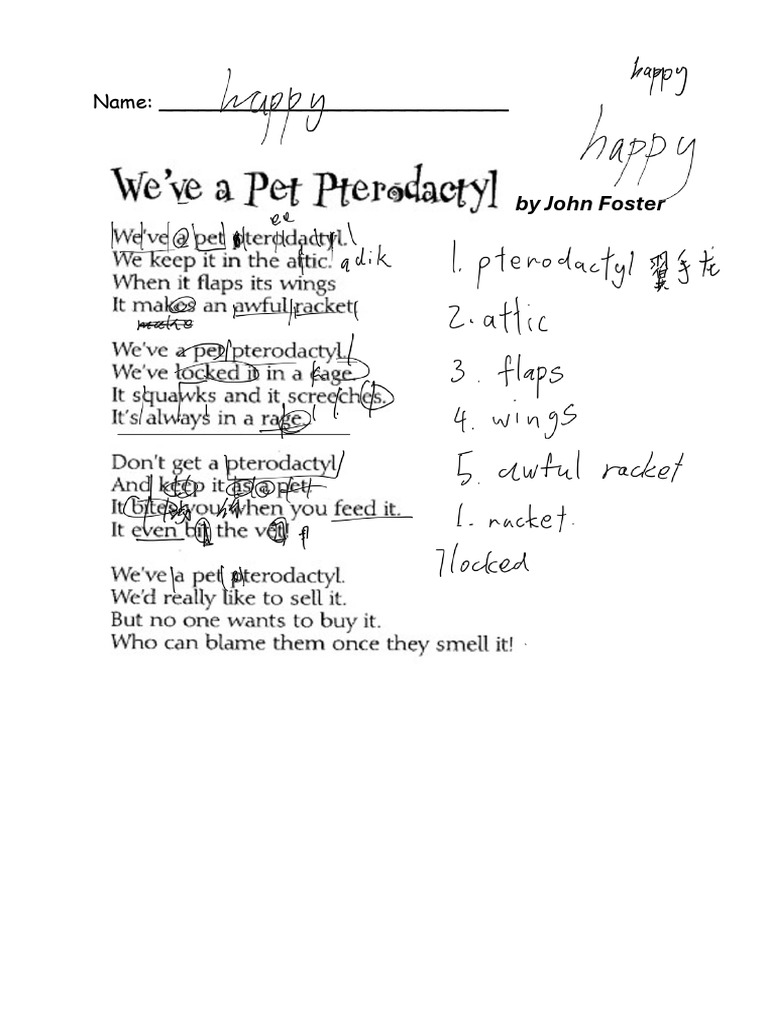 happy
Name: happy
happy
We've a Pet Pterodactyl by John Foster
ee
We've a pet pterodactyl.
We keep it in the attic. adik
When it flaps its wings
It makes an awful racket.
We've a pet pterodactyl.
We've locked it in a cage.
It squawks and it screeches.
It's always in a rage.
Don't get a pterodactyl
And keep it as a pet.
It bites you when you feed it.
It even bit the vet!
We've a pet pterodactyl.
We'd really like to sell it.
But no one wants to buy it.
Who can blame them once they smell it!
1. pterodactyl 翼手龙
2. attic
3. flaps
4. wings
5. awful racket
1. racket.
7 locked